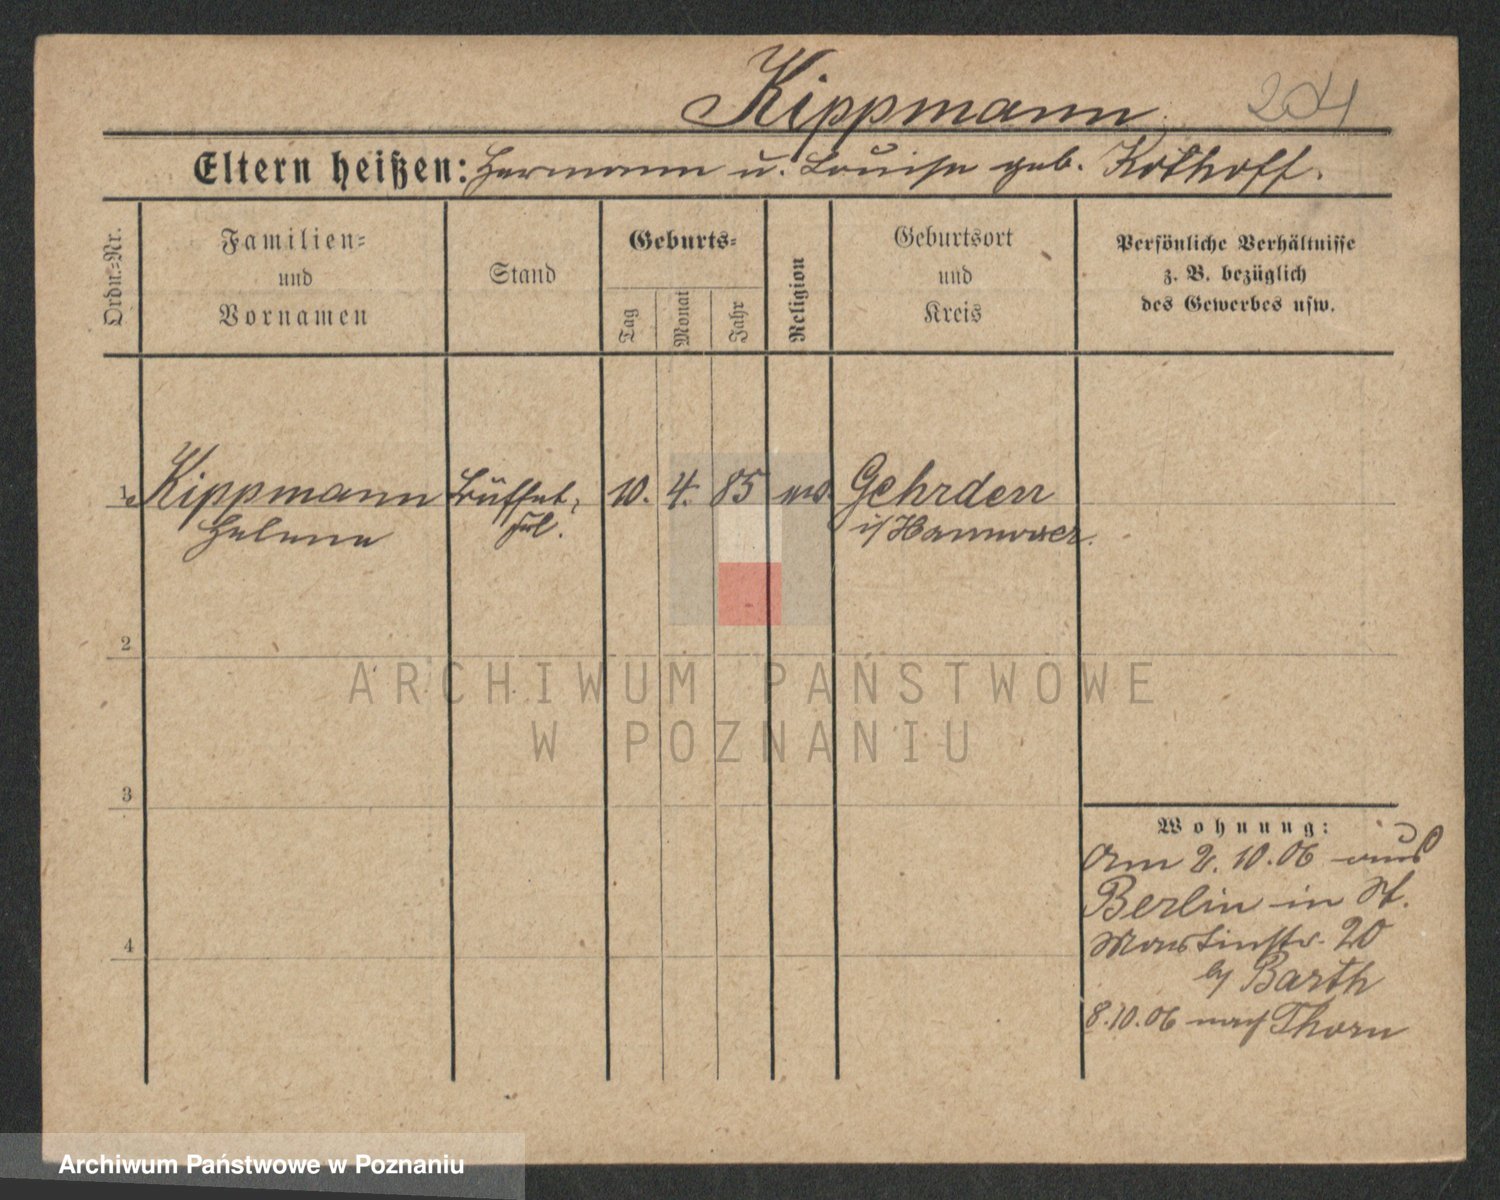 Kippmann
Eltern heißen: Hermann u. Louise geb. Kothoff.
Ordn.-Nr.
Familien-
und
Vornamen
Stand
Geburts-
Tag
Monat
Jahr
Religion
Geburtsort
und
Kreis
Persönliche Verhältnisse
z. B. bezüglich
des Gewerbes usw.
1 Kippmann Büffet- 10. 4. 85 ev. Gehrden
Helene frl. i/Hannover.
2
ARCHIWUM PAŃSTWOWE
W POZNANIU
3
Wohnung:
Am 2.10.06 aus
Berlin in St.
Martinstr. 20
by Barth
4
8.10.06 nach Thorn
Archiwum Państwowe w Poznaniu